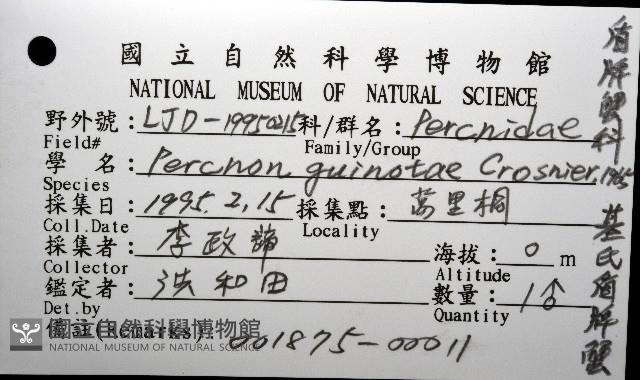 國立自然科學博物館
NATIONAL MUSEUM OF NATURAL SCIENCE
野外號：LJD-19950215 科/群名：Percnidae
Field# Family/Group
學名：Percnon guinotae Crosnier, 1965
Species
採集日：1995.2.15 採集點：萬里桐
Coll.Date Locality
採集者：李政諦 海拔：0 m
Collector Altitude
鑑定者：洪和田 數量：1♂
Det.by Quantity
(Remarks): 001875-00011
國立自然科學博物館
NATIONAL MUSEUM OF NATURAL SCIENCE
盾牌蟹科 基氏盾牌蟹